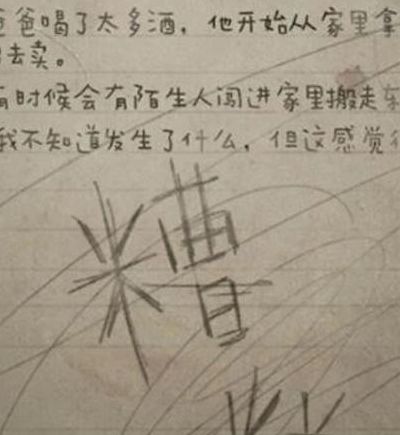 爸喝了太多酒，他开始从家里拿
去卖。
有时候会有陌生人闯进家里搬走东
我不知道发生了什么，但这感觉很
糟